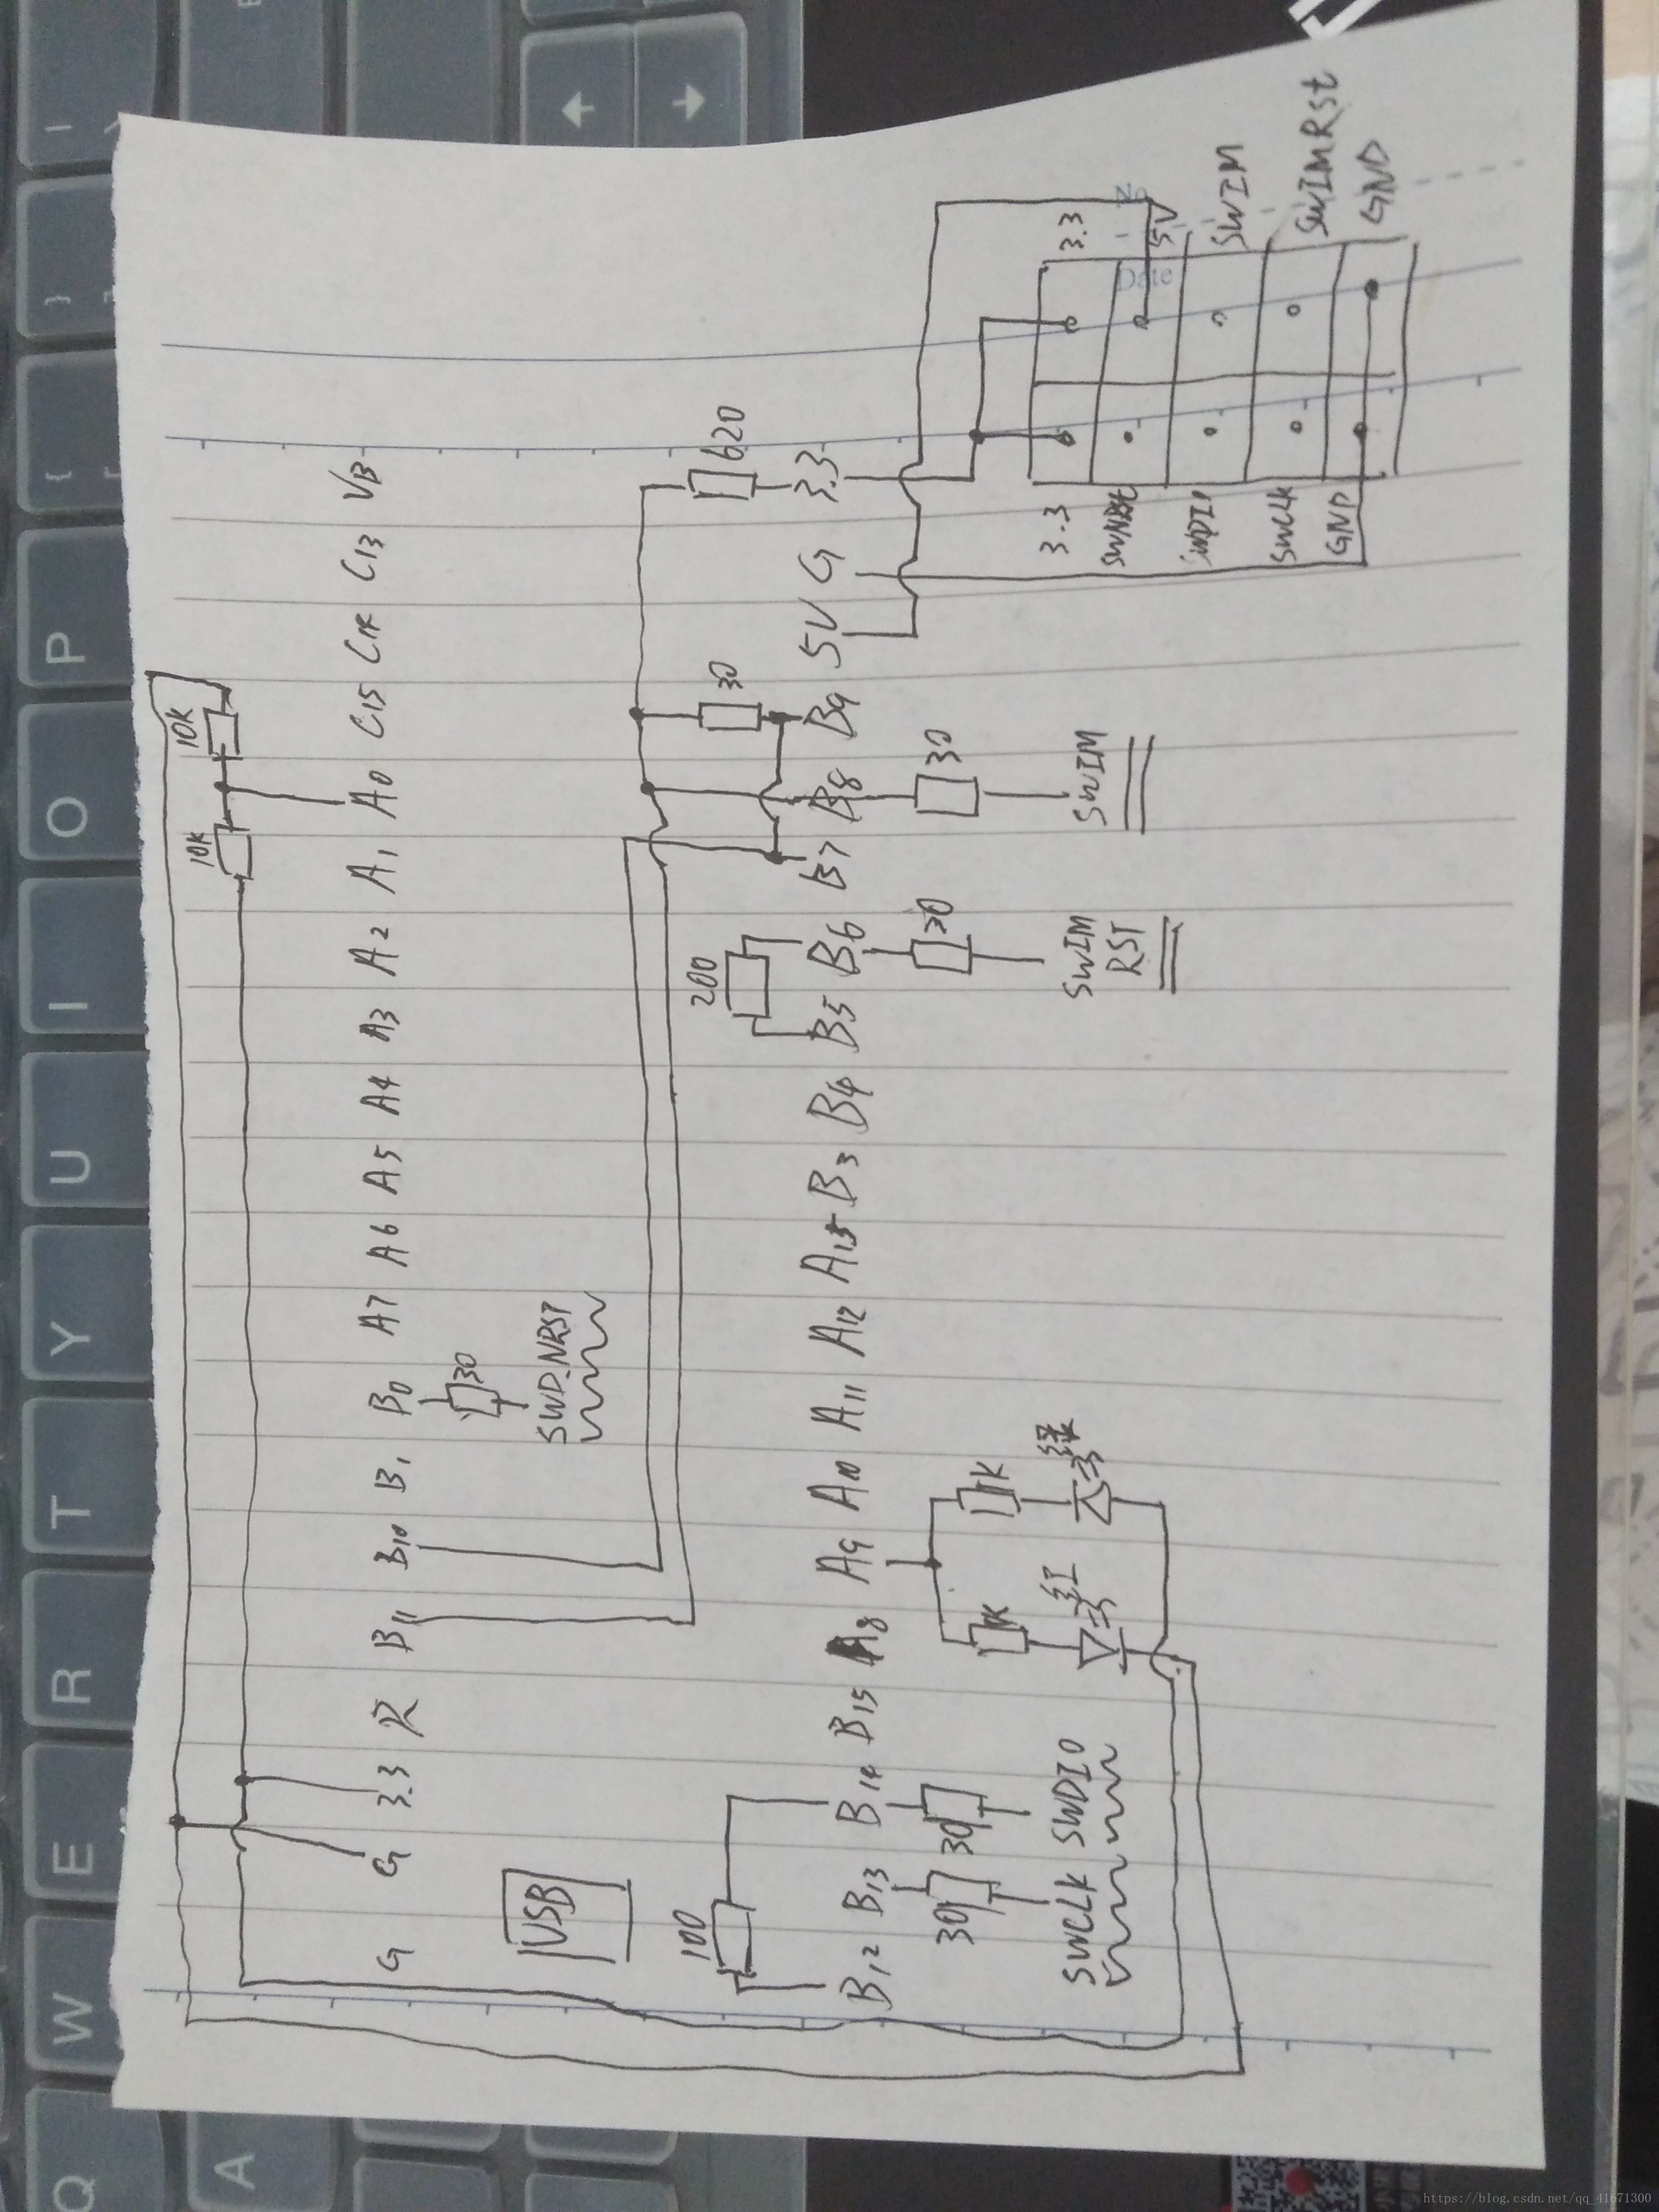 10K 10K
G G 3.3 R B11 B10 B1 B0 A7 A6 A5 A4 A3 A2 A1 A0 C15 C14 C13 VB
30
SWD_NRST
USB
100 200 30 620
B12 B13 B14 B15 A8 A9 A10 A11 A12 A15 B3 B4 B5 B6 B7 B8 B9 5V G 3.3
30 30 1K 1K 30 30
SWCLK SWDIO 红 绿 SWIM RST SWIM
3.3 3.3
SWNRst 5V
SWDIO SWIM
SWCLK SWIMRSt
GND GND
No
Date
Q W E R T Y U I O P
A
{ [
} ]
https://blog.csdn.net/qq_41671300